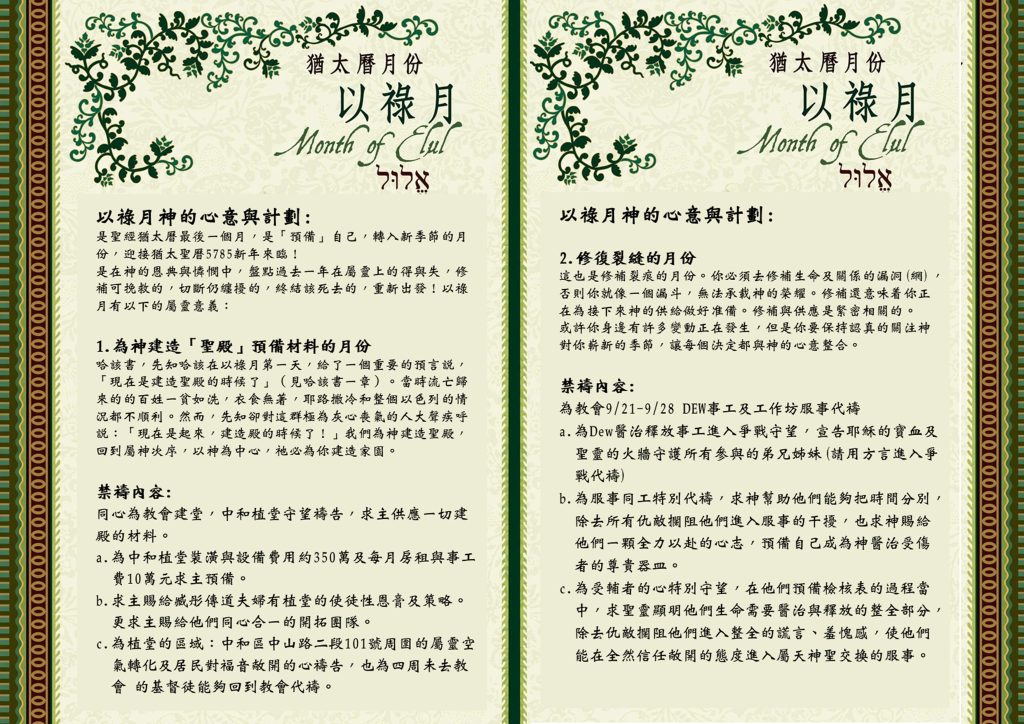 猶太曆月份
以祿月
Month of Elul
אֱלוּל
以祿月神的心意與計劃:
是聖經猶太曆最後一個月,是「預備」自己,轉入新季節的月
份,迎接猶太聖曆5785新年來臨!
是在神的恩典與憐憫中,盤點過去一年在屬靈上的得與失,修
補可挽救的,切斷仍纏擾的,終結該死去的,重新出發!以祿
月有以下的屬靈意義:
1.為神建造「聖殿」預備材料的月份
哈該書,先知哈該在以祿月第一天,給了一個重要的預言說,
「現在是建造聖殿的時候了」(見哈該書一章)。當時流亡歸
來的的百姓一貧如洗,衣食無著,耶路撒冷和整個以色列的情
況都不順利。然而,先知卻對這群極為灰心喪氣的人大聲疾呼
說:「現在是起來,建造殿的時候了!」我們為神建造聖殿,
回到屬神次序,以神為中心,祂必為你建造家園。
禁禱內容:
同心為教會建堂,中和植堂守望禱告,求主供應一切建
殿的材料。
a.為中和植堂裝潢與設備費用約350萬及每月房租與事工
費10萬元求主預備。
b.求主賜給臧彤傳道夫婦有植堂的使徒性恩膏及策略。
更求主賜給他們同心合一的開拓團隊。
c.為植堂的區域:中和區中山路二段101號周圍的屬靈空
氣轉化及居民對福音敞開的心禱告,也為四周未去教
會 的基督徒能夠回到教會代禱。
猶太曆月份
以祿月
Month of Elul
אֱלוּל
以祿月神的心意與計劃:
2.修復裂縫的月份
這也是修補裂痕的月份。你必須去修補生命及關係的漏洞(網),
否則你就像一個漏斗,無法承載神的榮耀。修補還意味着你正
在為接下來神的供給做好準備。修補與供應是緊密相關的。
或許你身邊有許多變動正在發生,但是你要保持認真的關注神
對你嶄新的季節,讓每個決定都與神的心意整合。
禁禱內容:
為教會9/21-9/28 DEW事工及工作坊服事代禱
a.為Dew醫治釋放事工進入爭戰守望,宣告耶穌的寶血及
聖靈的火牆守護所有參與的弟兄姊妹(請用方言進入爭
戰代禱)
b.為服事同工特別代禱,求神幫助他們能夠把時間分別,
除去所有仇敵攔阻他們進入服事的干擾,也求神賜給
他們一顆全力以赴的心志,預備自己成為神醫治受傷
者的尊貴器皿。
c.為受輔者的心特別守望,在他們預備檢核表的過程當
中,求聖靈顯明他們生命需要醫治與釋放的整全部分,
除去仇敵攔阻他們進入整全的謊言、羞愧感,使他們
能在全然信任敞開的態度進入屬天神聖交換的服事。